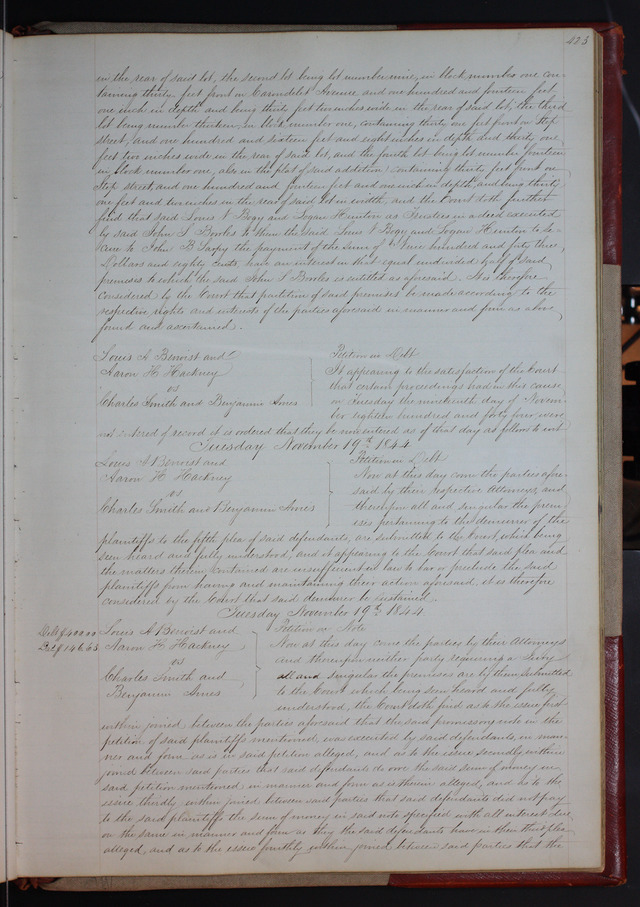 423
in the rear of said lot, the second lot being lot number nine, in block number one con-
taining thirty feet front on Carondelet Avenue and one hundred and fourteen feet
one inch in depth and being thirty feet two inches wide in the rear of said lot, the third
lot being number thirteen, in block number one, containing thirty one feet front on Stop
street, and one hundred and sixteen feet and eight inches in depth and thirty one
feet two inches wide in the rear of said lot, and the fourth lot being lot number fourteen
in block number one, also in the plat of said addition containing thirty feet front on
Stop street, and one hundred and fourteen feet and one inch in depth, and being thirty
one feet and two inches in the rear of said lot in width, and the Court doth further
find that said Louis V Bogy and Logan Hunton as Trustees in a deed executed
by said John S Bowles to them the said Louis V Bogy and Logan Hunton to se-
cure to John B Sarpy the payment of the sum of five hundred and forty three
Dollars and eighty cents, have an interest in that equal undivided half of said
premises to which the said John S Bowles is entitled as aforesaid. It is therefore
considered by the Court that partition of said premises be made according to the
respective rights and interests of the parties aforesaid in manner and form as above
found and ascertained.
Louis A Benoist and Petition in Debt
Aaron H Hackney It appearing to the satisfaction of the Court
vs that certain proceedings had in this cause
Charles Smith and Benjamin Ames on Tuesday the nineteenth day of Novem-
ber eighteen hundred and forty four were
not entered of record it is ordered that they be now entered as of that day as follows to wit
Tuesday November 19th 1844
Louis A Benoist and Petition in Debt
Aaron H Hackney Now at this day come the parties afore-
vs said by their respective Attorneys, and
Charles Smith and Benjamin Ames thereupon all and singular the prem-
ises pertaining to the demurrer of the
plaintiffs to the fifth plea of said defendants, are submitted to the Court, which being
seen heard and fully understood, and it appearing to the Court that said plea and
the matters therein contained are insufficient in law to bar or preclude the said
plaintiffs from having and maintaining their action aforesaid, it is therefore
considered by the Court that said demurrer be sustained.
Tuesday November 19th 1844
Debt $400.00 Louis A Benoist and Petition on Note
Aaron H Hackney Now at this day come the parties by their Attorneys
vs and thereupon neither party requiring a Jury
Charles Smith and all and singular the premises are by them submitted
Benjamin Ames to the Court which being seen heard and fully
understood, the Court doth find as to the issue first
within joined, between the parties aforesaid that the said promissory note in the
petition of said plaintiffs mentioned, was executed by said defendants, in man-
ner and form as is in said petition alleged, and as to the issue secondly within
joined between said parties that said defendants do owe the said sum of money in
said petition mentioned in manner and form as is therein alleged, and as to the
issue thirdly within joined between said parties that said defendants did not pay
to the said plaintiffs the sum of money in said note specified with all interest due
on the same in manner and form as they the said defendants have in their third plea
alleged, and as to the issue fourthly within joined between said parties that the